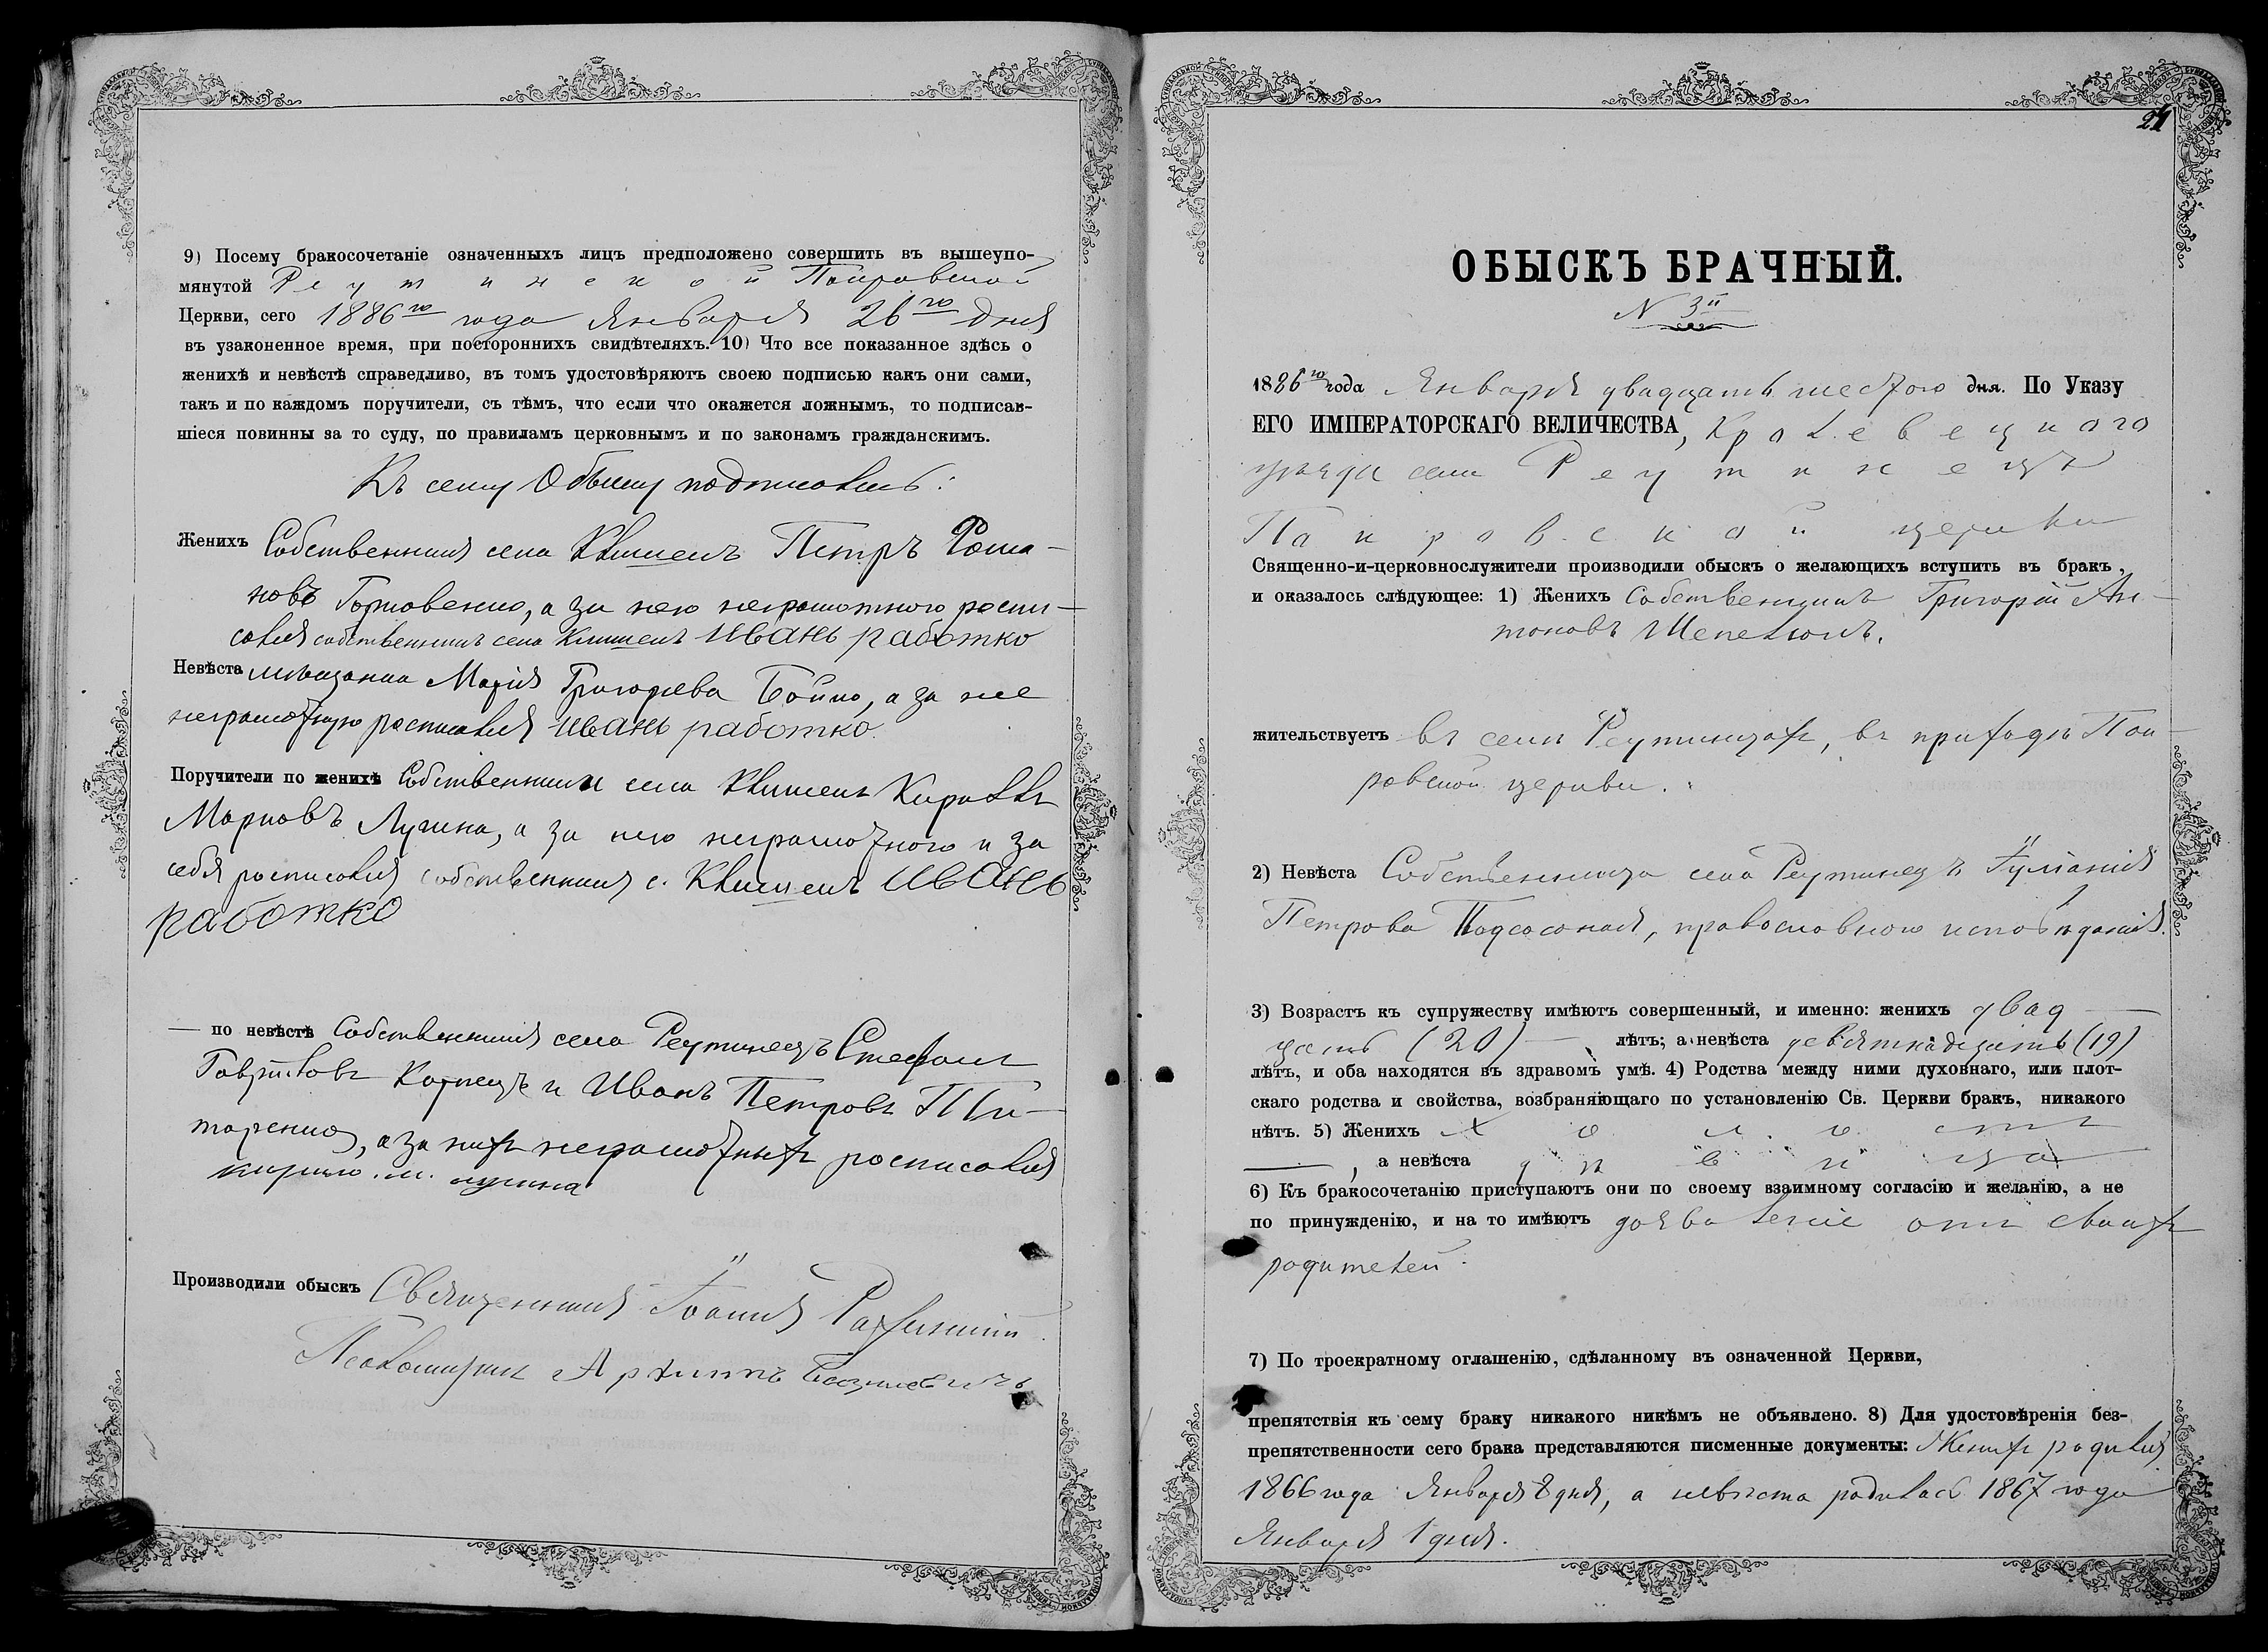 9) Посему бракосочетаніе означенныхъ лицъ предположено совершить въ вышеупо-
мянутой Реутинской Покровской
Церкви, сего 1886го года Января 26го дня
въ узаконенное время, при постороннихъ свидѣтеляхъ. 10) Что все показанное здѣсь о
женихѣ и невѣстѣ справедливо, въ томъ удостовѣряютъ своею подписью какъ они сами,
такъ и по каждомъ поручители, съ тѣмъ, что если что окажется ложнымъ, то подписав-
шіеся повинны за то суду, по правиламъ церковнымъ и по законамъ гражданскимъ.
Къ сему Обыску подписались:
Женихъ Собственникъ села Клишекъ Петръ Рома-
новъ Горковенко, а за него неграмотного роспи-
сался собственникъ села Клишекъ Иванъ работко
Невѣста мѣщанка Марія Григорьева Бойко, а за нее
неграмотную росписался Иванъ работко.
Поручители по женихѣ Собственники села Клишекъ Кириллъ
Марковъ Лузина, а за него неграмотного и за
себя росписался собственникъ с. Клишекъ Иванъ
работко
— по невѣстѣ Собственники села Реутинецъ Стефанъ
Гавриловъ Корнецъ и Иванъ Петровъ Ти-
таренко, а за нихъ неграмотныхъ росписался
кирило. м. лузина
Производили обыскъ Священникъ Іоаннъ
Псаломщикъ Архиппъ
24
ОБЫСКЪ БРАЧНЫЙ.
N 3й
1886го года Января двадцать шестого дня. По Указу
ЕГО ИМПЕРАТОРСКАГО ВЕЛИЧЕСТВА, Кролевецкого
уѣзда села Реутинецъ
Покровской церкви
Священно-и-церковнослужители производили обыскъ о желающихъ вступить въ бракъ,
и оказалось слѣдующее: 1) Женихъ Собственникъ Григорій Ан-
тоновъ Шепелюкъ.
жительствуетъ въ селѣ Реутинцахъ, въ приходѣ Пок-
ровской церкви.
2) Невѣста Собственница села Реутинецъ Іуліанія
Петрова Подсосоная, православного исповѣданія.
3) Возрастъ къ супружеству имѣютъ совершенный, и именно: женихъ двад-
цать (20) — лѣтъ; а невѣста девятнадцать (19)
лѣтъ, и оба находятся въ здравомъ умѣ. 4) Родства между ними духовнаго, или плот-
скаго родства и свойства, возбраняющаго по установленію Св. Церкви бракъ, никакого
нѣтъ. 5) Женихъ холостъ
—, а невѣста дѣвица
6) Къ бракосочетанію приступаютъ они по своему взаимному согласію и желанію, а не
по принужденію, и на то имѣютъ дозволеніе отъ своихъ
родителей.
7) По троекратному оглашенію, сдѣланному въ означенной Церкви,
препятствія къ сему браку никакого никѣмъ не объявлено. 8) Для удостовѣренія без-
препятственности сего брака представляются писменные документы: Женихъ родился
1866 года Января 8 дня, а невѣста родилась 1867 года
Января 1 дня.